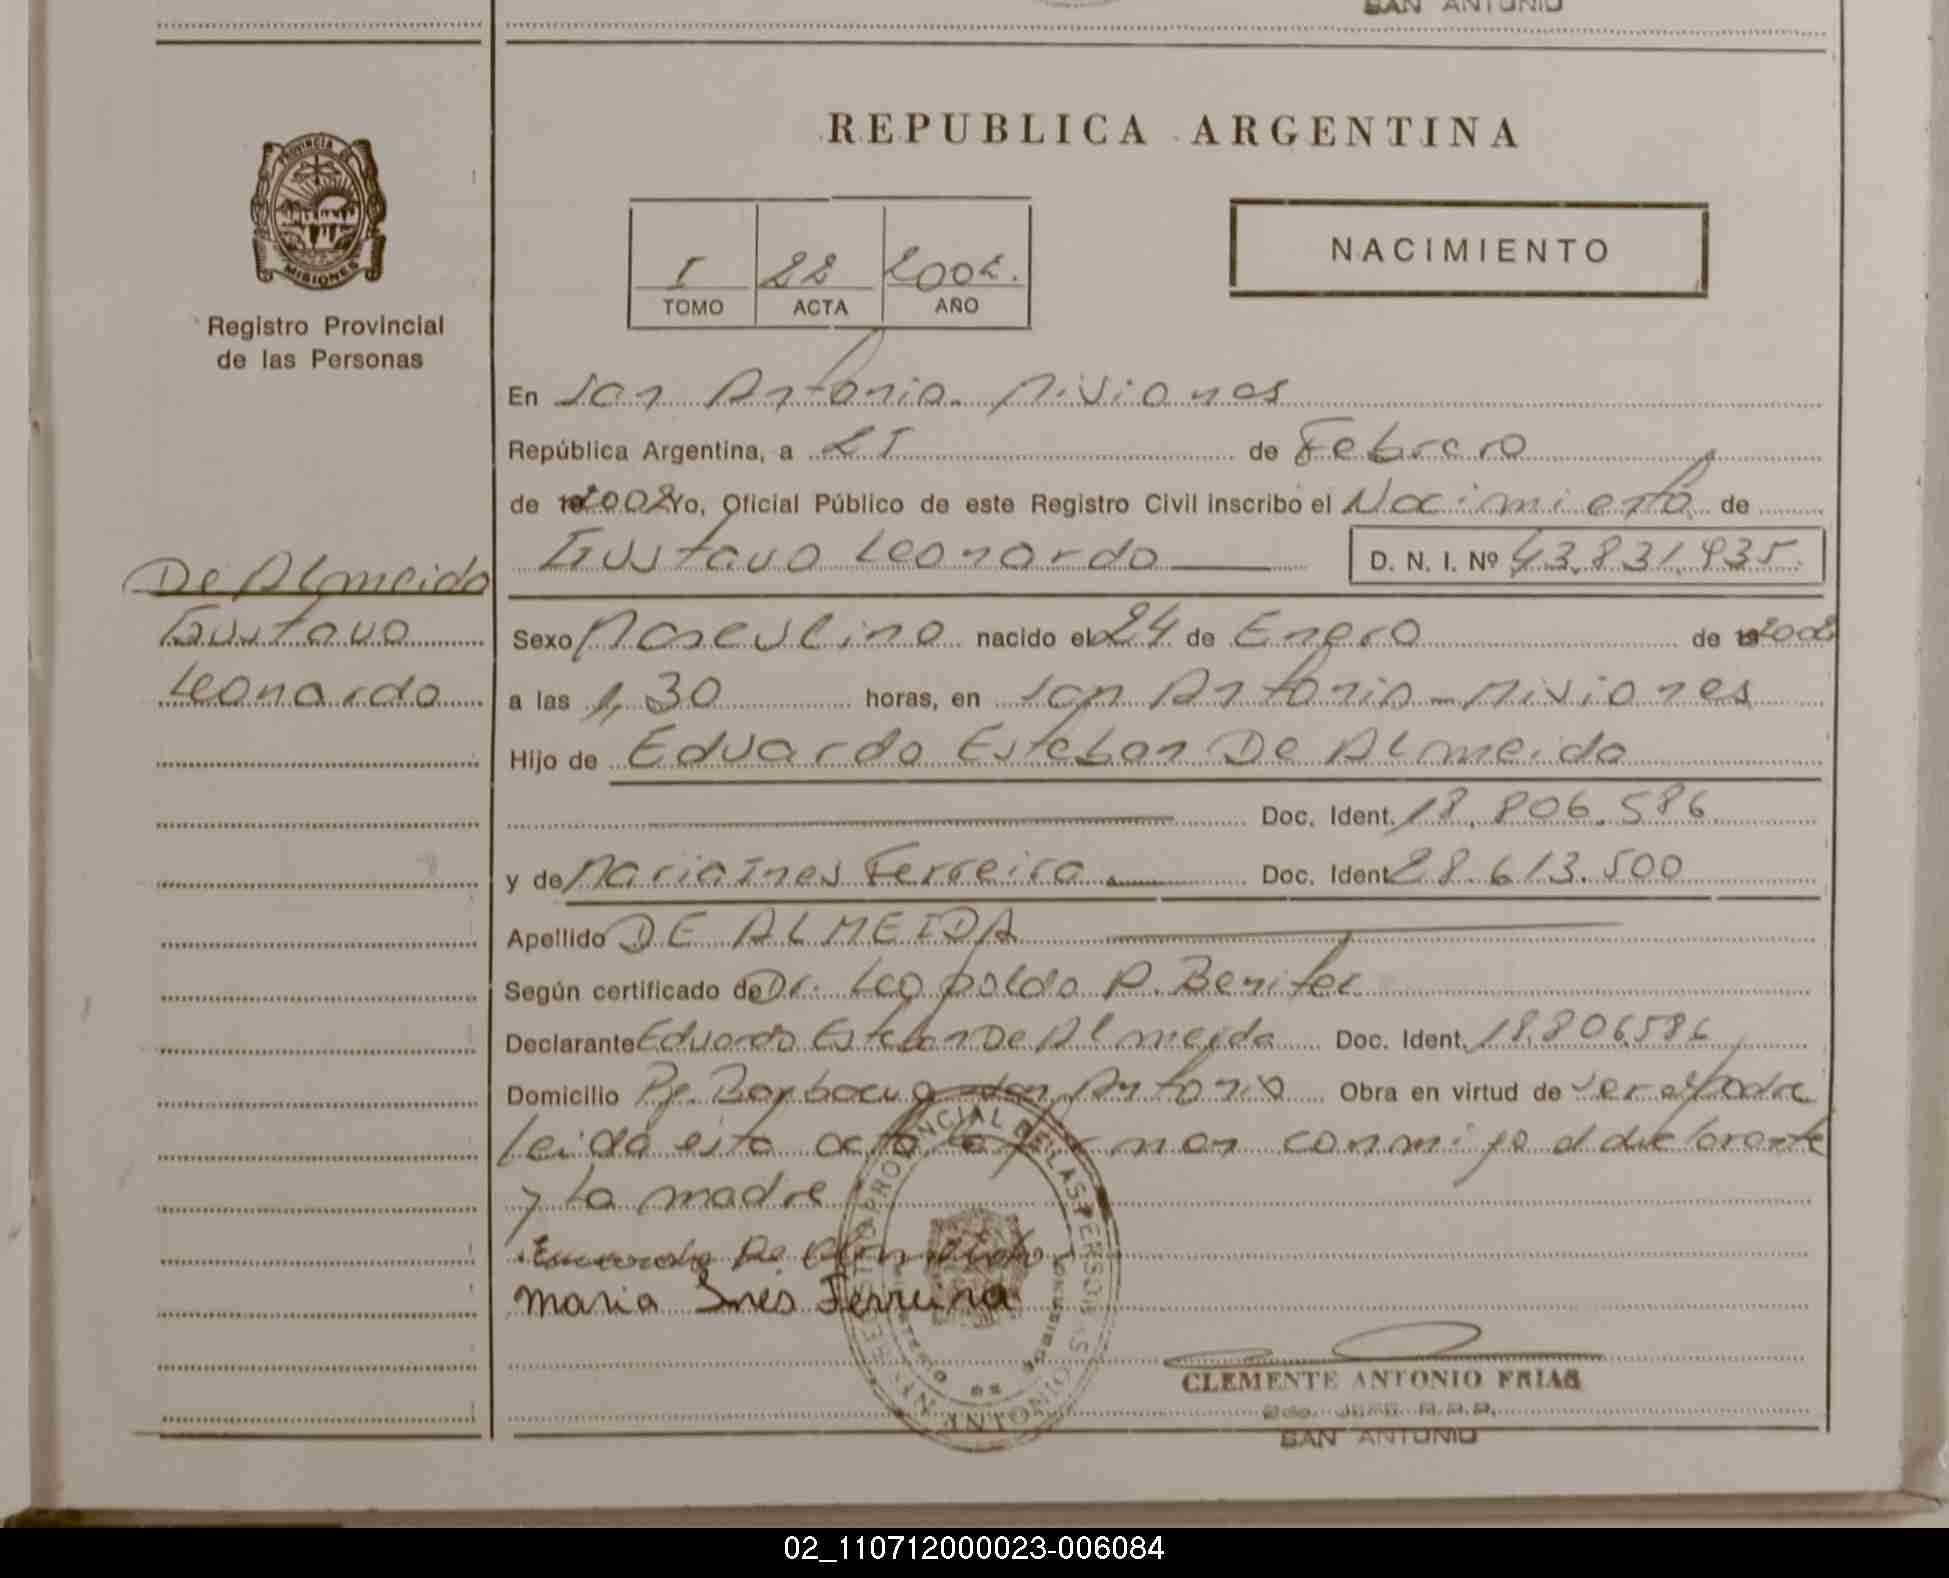 SAN ANTONIO
PROVINCIA DE
MISIONES
Registro Provincial
de las Personas
REPUBLICA ARGENTINA
I 22 2002.
TOMO ACTA AÑO
NACIMIENTO
En San Antonio - Misiones
República Argentina, a 21 de Febrero
de 192002 Yo, Oficial Público de este Registro Civil inscribo el Nacimiento de
Gustavo Leonardo D. N. I. Nº 43.831.935.
De Almeida
Gustavo
Leonardo
Sexo Masculino nacido el 24 de Enero de 192002
a las 1,30 horas, en San Antonio - Misiones
Hijo de Eduardo Esteban De Almeida
Doc. Ident. 18.806.586
y de Maria Ines Ferreira. Doc. Ident. 28.613.500
Apellido DE ALMEIDA
Según certificado de Dr. Leopoldo R. Benitez
Declarante Eduardo Esteban De Almeida Doc. Ident. 18.806.586
Domicilio Pje. Barbacua San Antonio Obra en virtud de ser el Padre
leida esta acta la firman conmigo el declarante
y la madre
De Almeida
Maria Inés Ferreira
REGISTRO PROVINCIAL DE LAS PERSONAS
SAN ANTONIO
CLEMENTE ANTONIO FRIAS
2do. JEFE R.P.P.
SAN ANTONIO
02_110712000023-006084